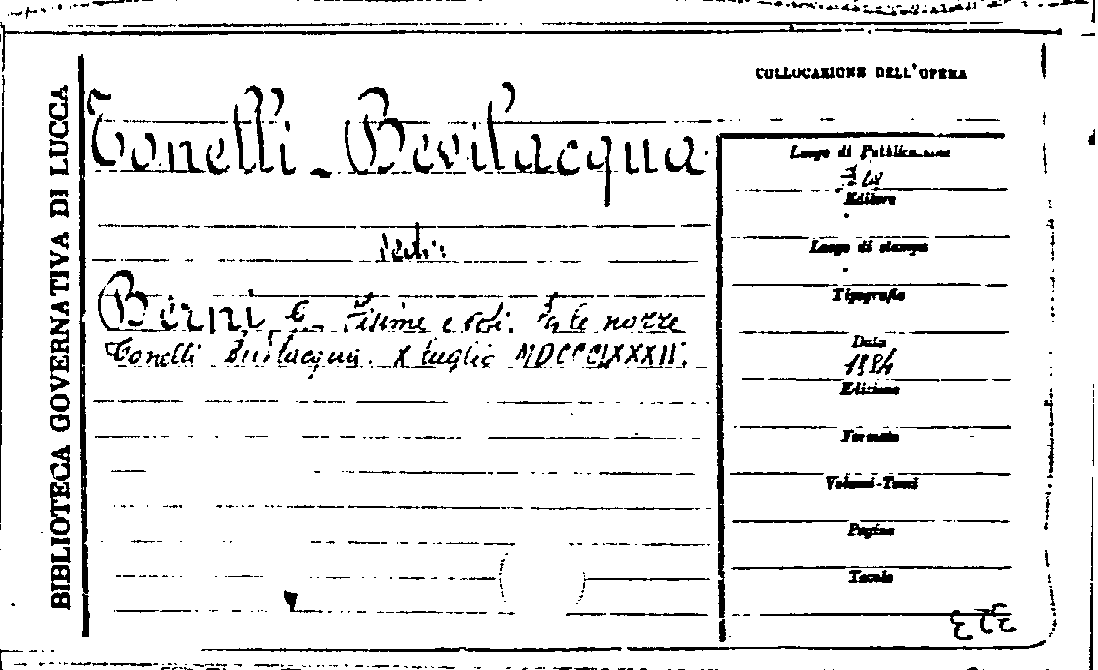 BIBLIOTECA GOVERNATIVA DI LUCCA
COLLOCAZIONE DELL'OPERA
Tonelli - Bevilacqua
vedi:
Berni E. e voti. Per le nozze
Tonelli Bevilacqua. X luglio
Luogo di Pubblicazione
Editore
Luogo di stampa
Tipografia
Data
1884
Edizione
Formato
Volumi-Tomi
Pagine
Tavole